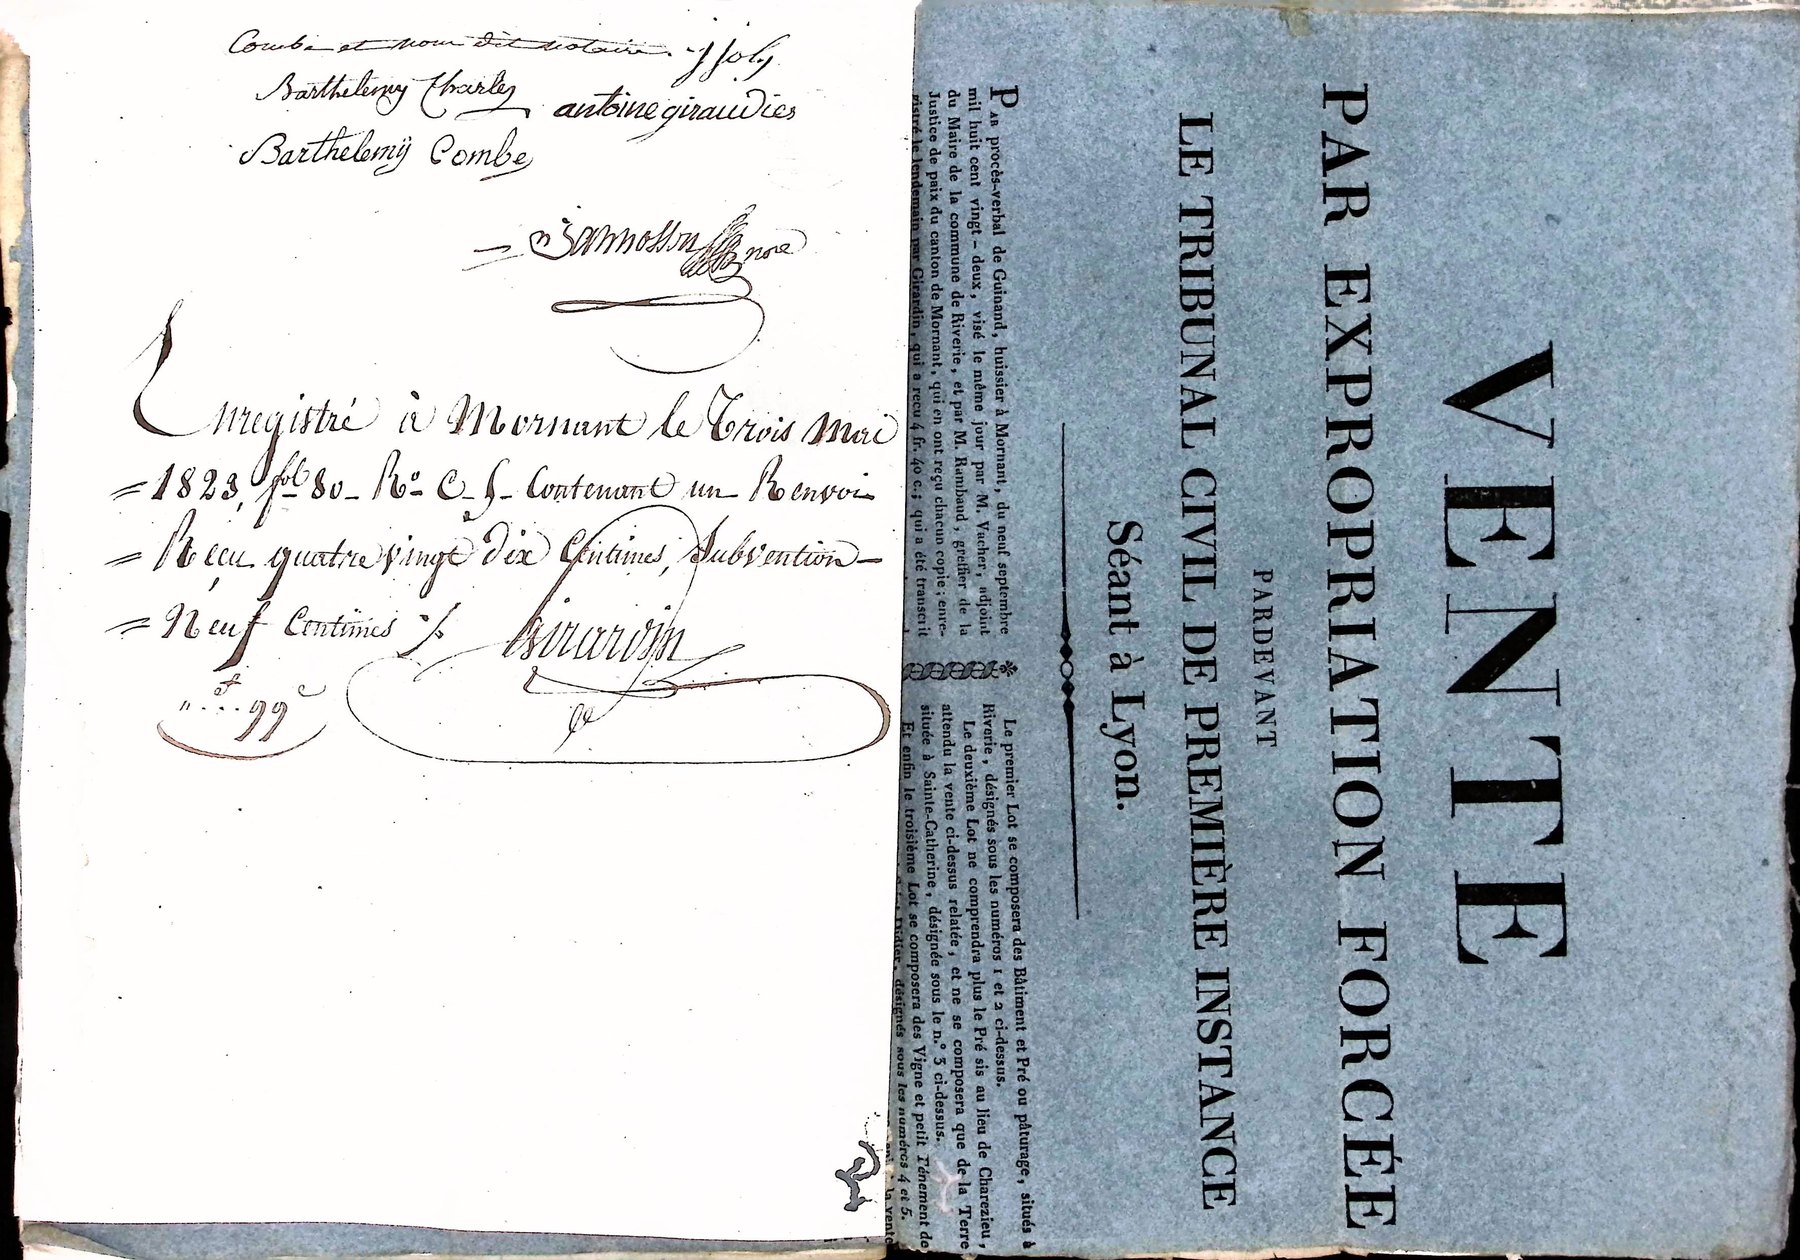 Combe et nom dit notaire. J Joly
Barthelemy Charles
antoine giraudies
Barthelemÿ Combe
= Jannosson nore
Enregistré à Mornant le Trois Mai
= 1823, fol 80 - Ro. C. 5 - Contenant un Renvoi
= Reçu quatre vingt dix Centimes, Subvention -
= Neuf Centimes ./. Girardin
"... 99c
VENTE
PAR EXPROPRIATION FORCÉE
PARDEVANT
LE TRIBUNAL CIVIL DE PREMIÈRE INSTANCE
Séant à Lyon.
PAR procès-verbal de Guinand, huissier à Mornant, du neuf septembre
mil huit cent vingt-deux, visé le même jour par M. Vacher, adjoint
du Maire de la commune de Riverie, et par M. Rambaud, greffier de la
Justice de paix du canton de Mornant, qui en ont reçu chacun copie; enre-
gistré le lendemain par Girardin, qui a reçu 4 fr. 40 c.; qui a été transcrit
Le premier Lot se composera des Bâtiment et Pré ou pâturage, situés à
Riverie, désignés sous les numéros 1 et 2 ci-dessus.
Le deuxième Lot ne comprendra plus le Pré sis au lieu de Charezieu,
attendu la vente ci-dessus relatée, et ne se composera que de la Terre
située à Sainte-Catherine, désignée sous le n.° 3 ci-dessus.
Et enfin le troisième Lot se composera des Vigne et petit Ténement de
désignés sous les numéros 4 et 5.
la vente